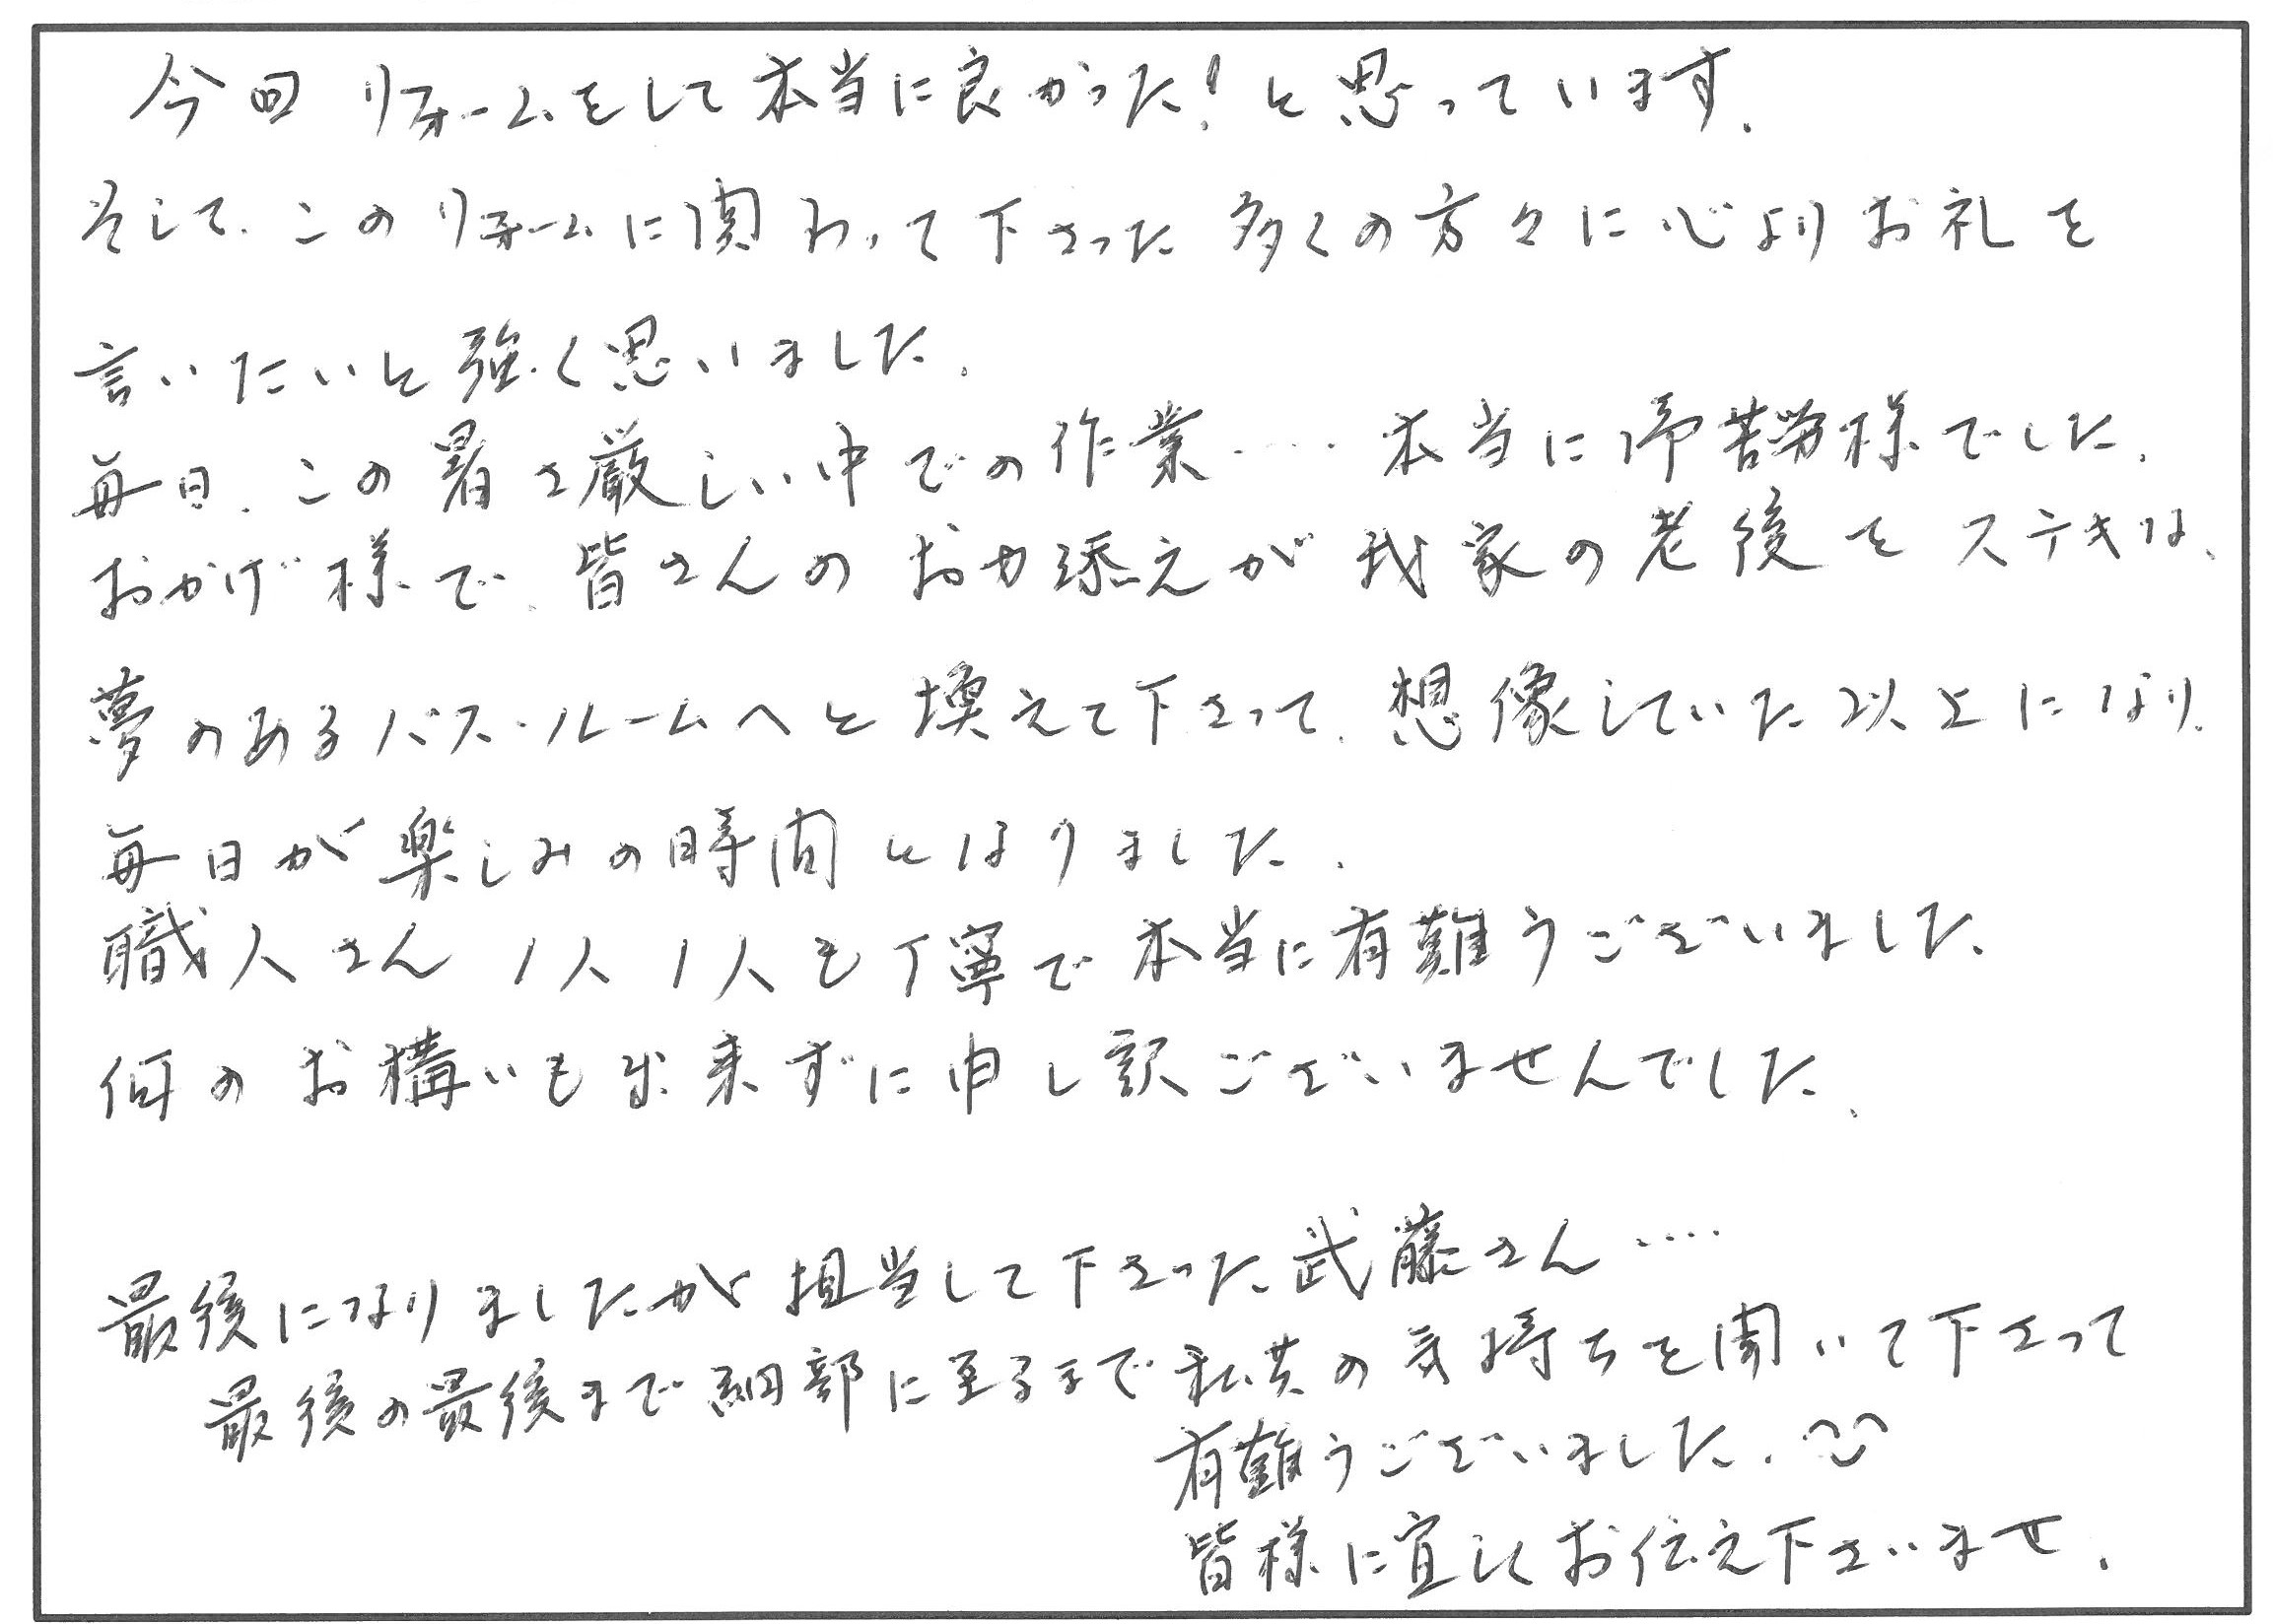 今回リフォームをして本当に良かった!と思っています.
そして.このリフォームに関わって下さった多くの方々に心よりお礼を
言いたいと強く思いました.
毎日.この暑さ厳しい中での作業‥‥本当に御苦労様でした.
おかげ様で.皆さんのお力添えが我家の老後をステキな、
夢のあるバス・ルームへと換えて下さって.想像していた以上になり.
毎日が楽しみの時間となりました.
職人さん1人1人も丁寧で本当に有難うございました.
何のお構いも出来ずに申し訳ございませんでした.
最後になりましたが担当して下さった武藤さん‥‥
最後の最後まで細部に至るまで私共の気持ちを聞いて下さって
有難うございました.
皆様に宜しくお伝え下さいませ.